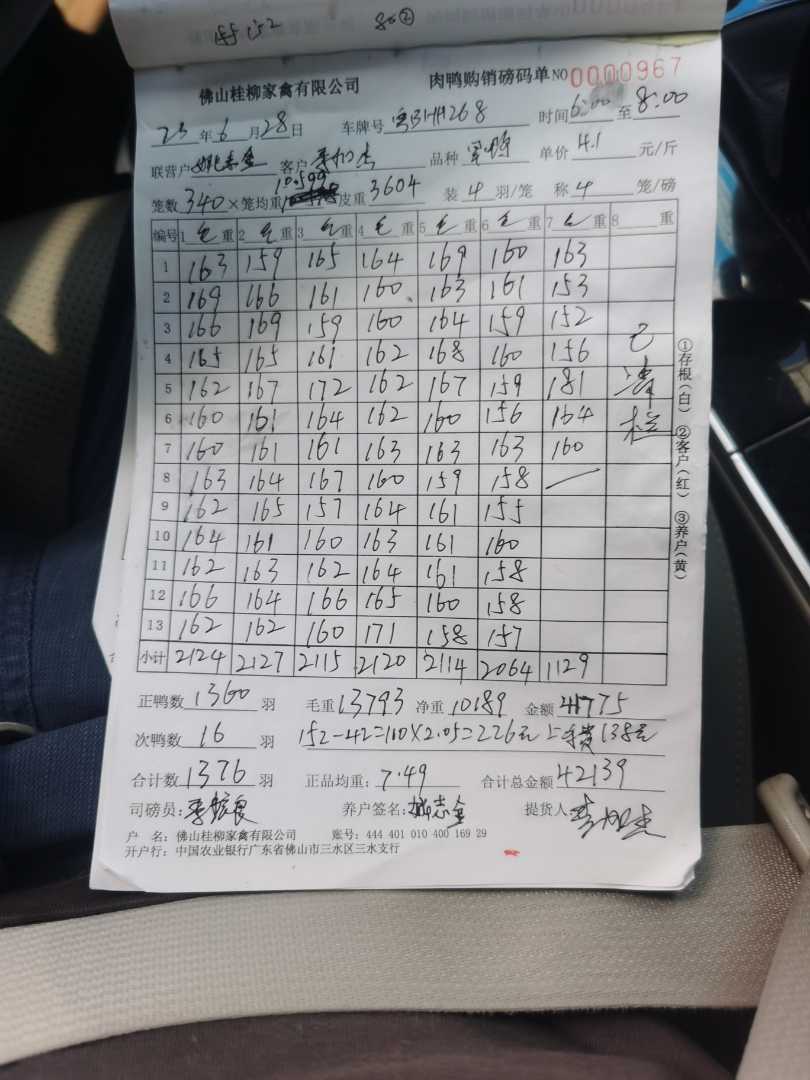 次152 80②
佛山桂柳家禽有限公司 肉鸭购销磅码单 NO 0000967
25年6月28日 车牌号 粤BHH268 时间6:00至8:00
联营户 客户 品种 单价 4.1 元/斤
笼数 340 ×笼均重 10.599 皮重 3604 装 4 羽/笼 称 4 笼/磅
编号 1 毛 重 2 毛 重 3 毛 重 4 毛 重 5 毛 重 6 毛 重 7 毛 重 8 重
1 163 159 165 164 169 160 163
2 169 166 161 160 163 161 153
3 166 169 159 160 164 159 152
4 165 165 161 162 168 160 156
5 162 167 172 162 167 159 181
6 160 161 164 162 160 156 164
7 160 161 161 163 163 163 160
8 163 164 167 160 159 158
9 162 165 157 164 161 155
10 164 161 160 163 161 160
11 162 163 162 164 161 158
12 166 164 166 165 160 158
13 162 162 160 171 158 157
小计 2124 2127 2115 2120 2114 2064 1129
已清栏
①存根(白) ②客户(红) ③养户(黄)
正鸭数 1360 羽 毛重 13793 净重 10189 金额 41775
次鸭数 16 羽 152-42=110×2.05=226元 上手费138元
合计数 1376 羽 正品均重: 7.49 合计总金额 42139
司磅员: 养户签名: 提货人
户 名: 佛山桂柳家禽有限公司 账号: 444 401 010 400 169 29
开户行: 中国农业银行广东省佛山市三水区三水支行